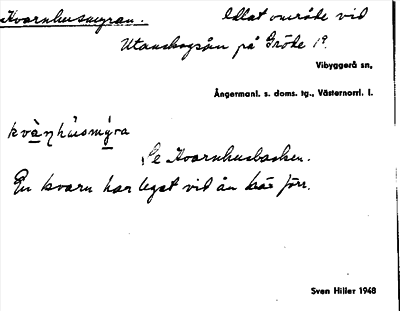 Kvarnhusmyran. Idlat område vid
Utanskogsån på Gröde 1⁹.
Vibyggerå sn,
Ångermanl. s. doms. tg., Västernorrl. l.
kvàn̥hùsmýra
Se Kvarnhusbacken.
En kvarn har legat vid ån här förr.
Sven Hiller 1948